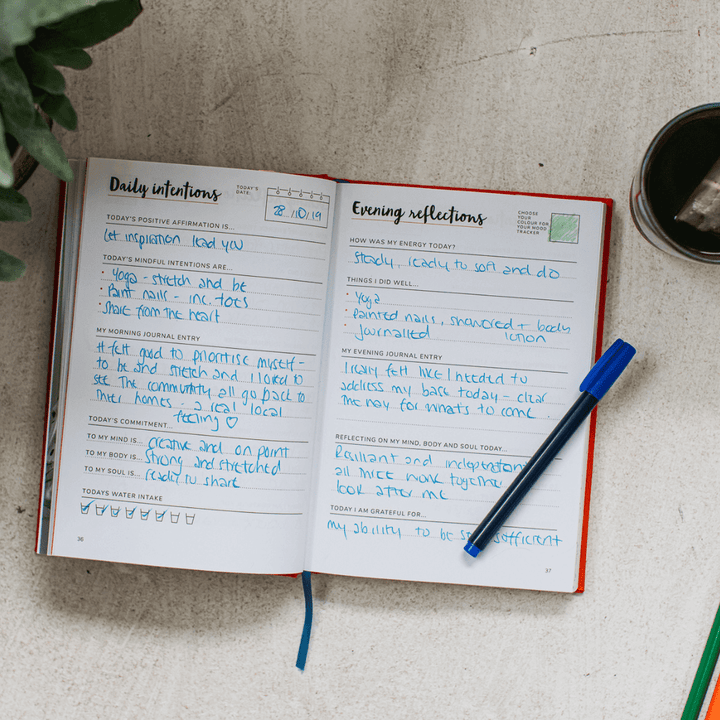 Daily intentions
TODAY'S
DATE:
28 /10/19
TODAY'S POSITIVE AFFIRMATION IS...
Let inspiration lead you
TODAY'S MINDFUL INTENTIONS ARE...
• Yoga - stretch and be
• Paint nails - inc. toes
• Share from the heart
MY MORNING JOURNAL ENTRY
It felt good to prioritise myself -
to be and stretch and I loved to
see the community all go back to
their homes. a real local
feeling ♡
TODAY'S COMMITMENT...
TO MY MIND IS... creative and on point
TO MY BODY IS... strong and stretched
TO MY SOUL IS... ready to share
TODAYS WATER INTAKE
36
Evening reflections
CHOOSE
YOUR
COLOUR FOR
YOUR MOOD
TRACKER
HOW WAS MY ENERGY TODAY?
Steady, ready to soft and do
THINGS I DID WELL...
• Yoga
• Painted nails, showered + body
lotion
• Journalled
MY EVENING JOURNAL ENTRY
I really felt like I needed to
address my base today - clear
the way for whats to come.
REFLECTING ON MY MIND, BODY AND SOUL TODAY...
Resilliant and
all nice work together
look after me
TODAY I AM GRATEFUL FOR...
my ability to be sufficient
37